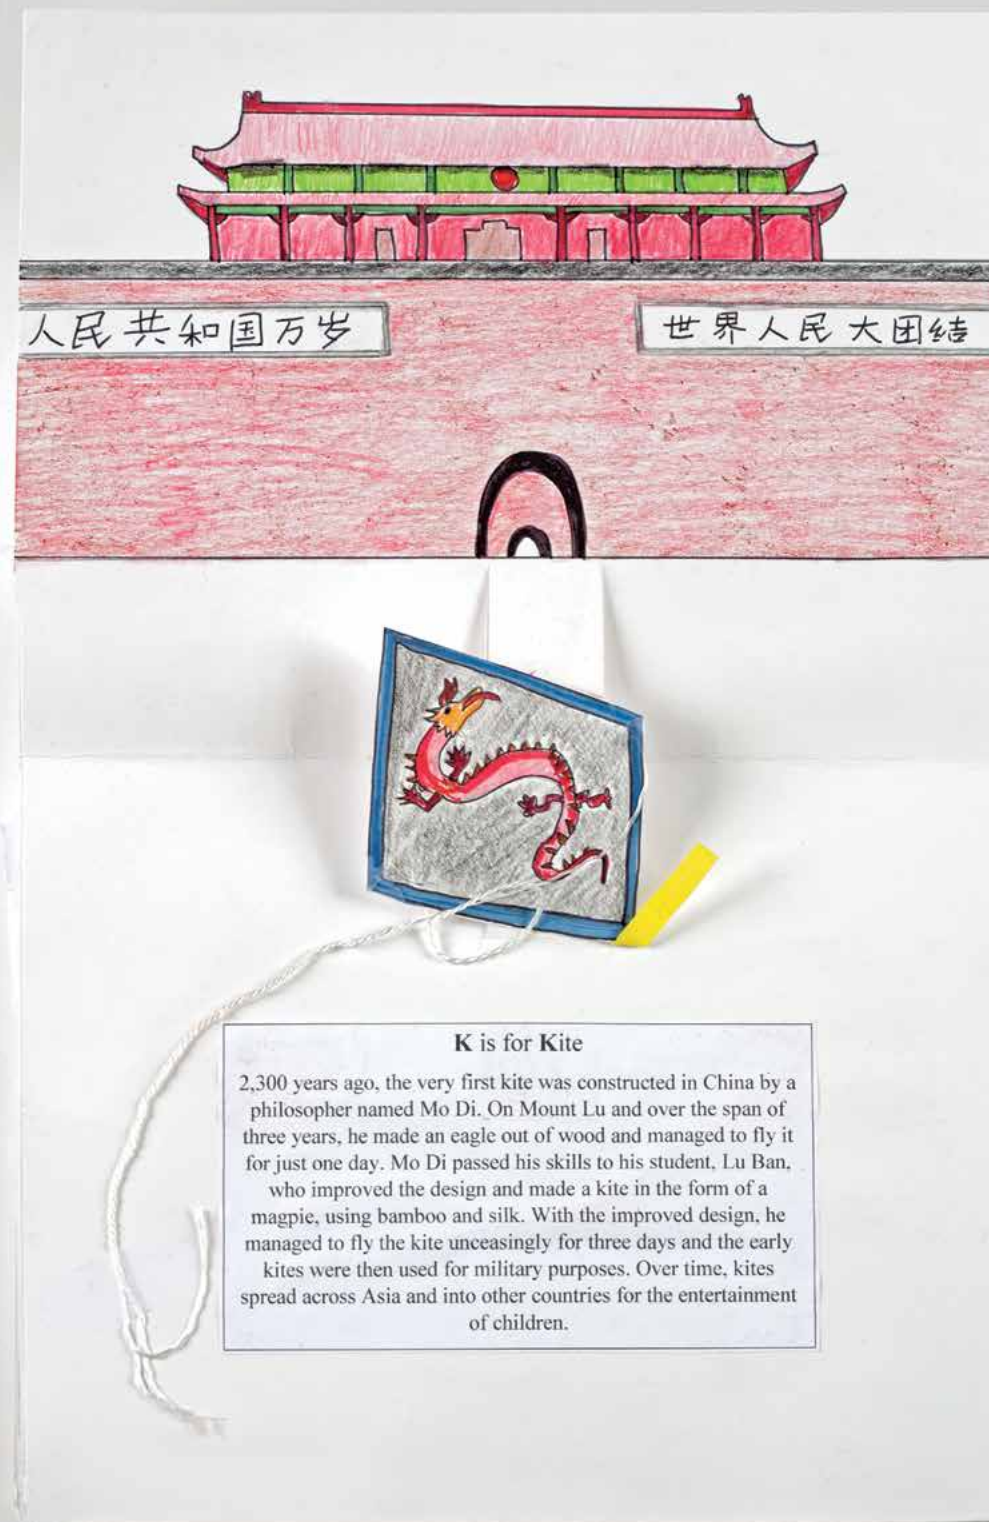 人民共和国万岁
世界人民大团结
K is for Kite
2,300 years ago, the very first kite was constructed in China by a
philosopher named Mo Di. On Mount Lu and over the span of
three years, he made an eagle out of wood and managed to fly it
for just one day. Mo Di passed his skills to his student, Lu Ban,
who improved the design and made a kite in the form of a
magpie, using bamboo and silk. With the improved design, he
managed to fly the kite unceasingly for three days and the early
kites were then used for military purposes. Over time, kites
spread across Asia and into other countries for the entertainment
of children.